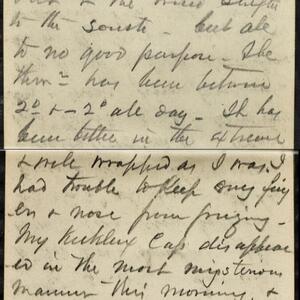 to the south - but all
to no good purpose - The
therm= has been between
2° & -2° all day - It has
been bitter in the extreme
& well wrapped as I was, I
had trouble to keep my fing
ers & nose from freezing -
My Kuklux Cap disappear
ed in the most mysterious
manner this morning, &